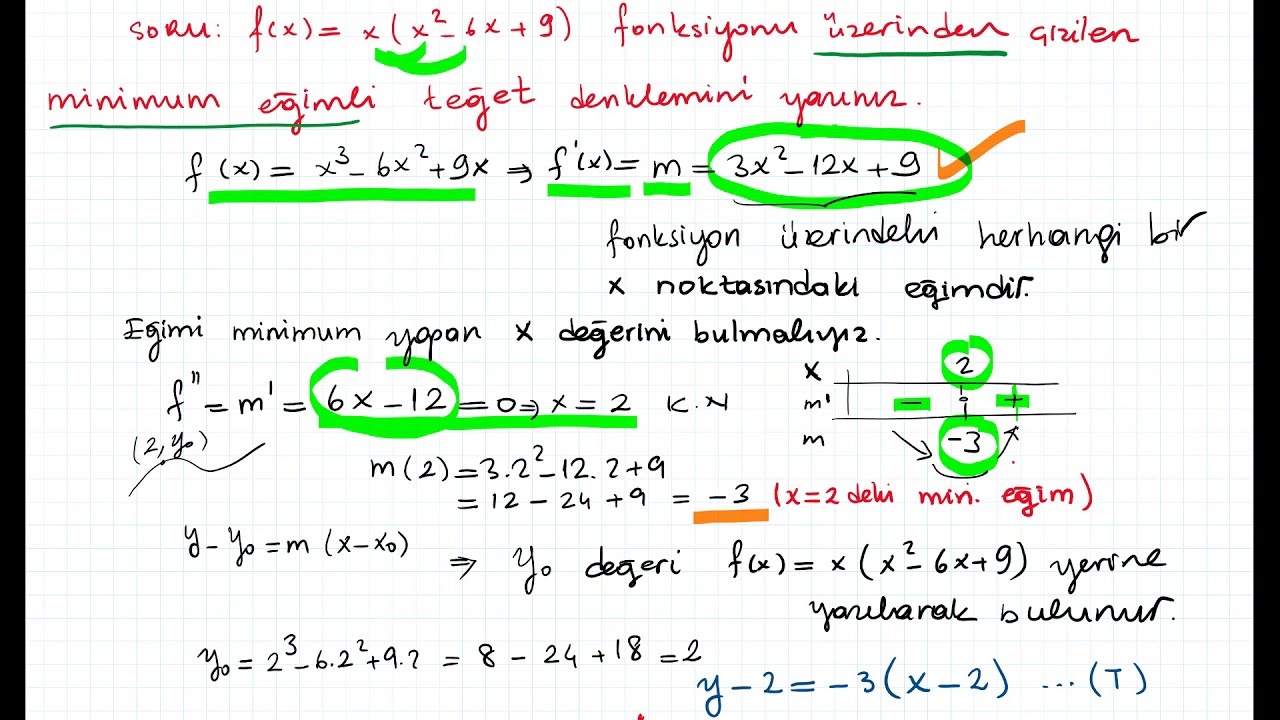 soru: f(x) = x(x² - 6x + 9) fonksiyonu üzerinden çizilen
minimum eğimli teğet denklemini yazınız.
f(x) = x³ - 6x² + 9x ⇒ f'(x) = m = 3x² - 12x + 9
fonksiyon üzerindeki herhangi bir
x noktasındaki eğimdir.
Eğimi minimum yapan x değerini bulmalıyız.
f'' = m' = 6x - 12 = 0 ⇒ x = 2 K.N
x 2
m' - +
m -3
(2, y₀)
m(2) = 3.2² - 12.2 + 9
= 12 - 24 + 9 = -3 (x=2 deki min. eğim)
y - y₀ = m(x - x₀) ⇒ y₀ değeri f(x) = x(x² - 6x + 9) yerine
yazılarak bulunur.
y₀ = 2³ - 6.2² + 9.2 = 8 - 24 + 18 = 2
y - 2 = -3(x - 2) ...(T)